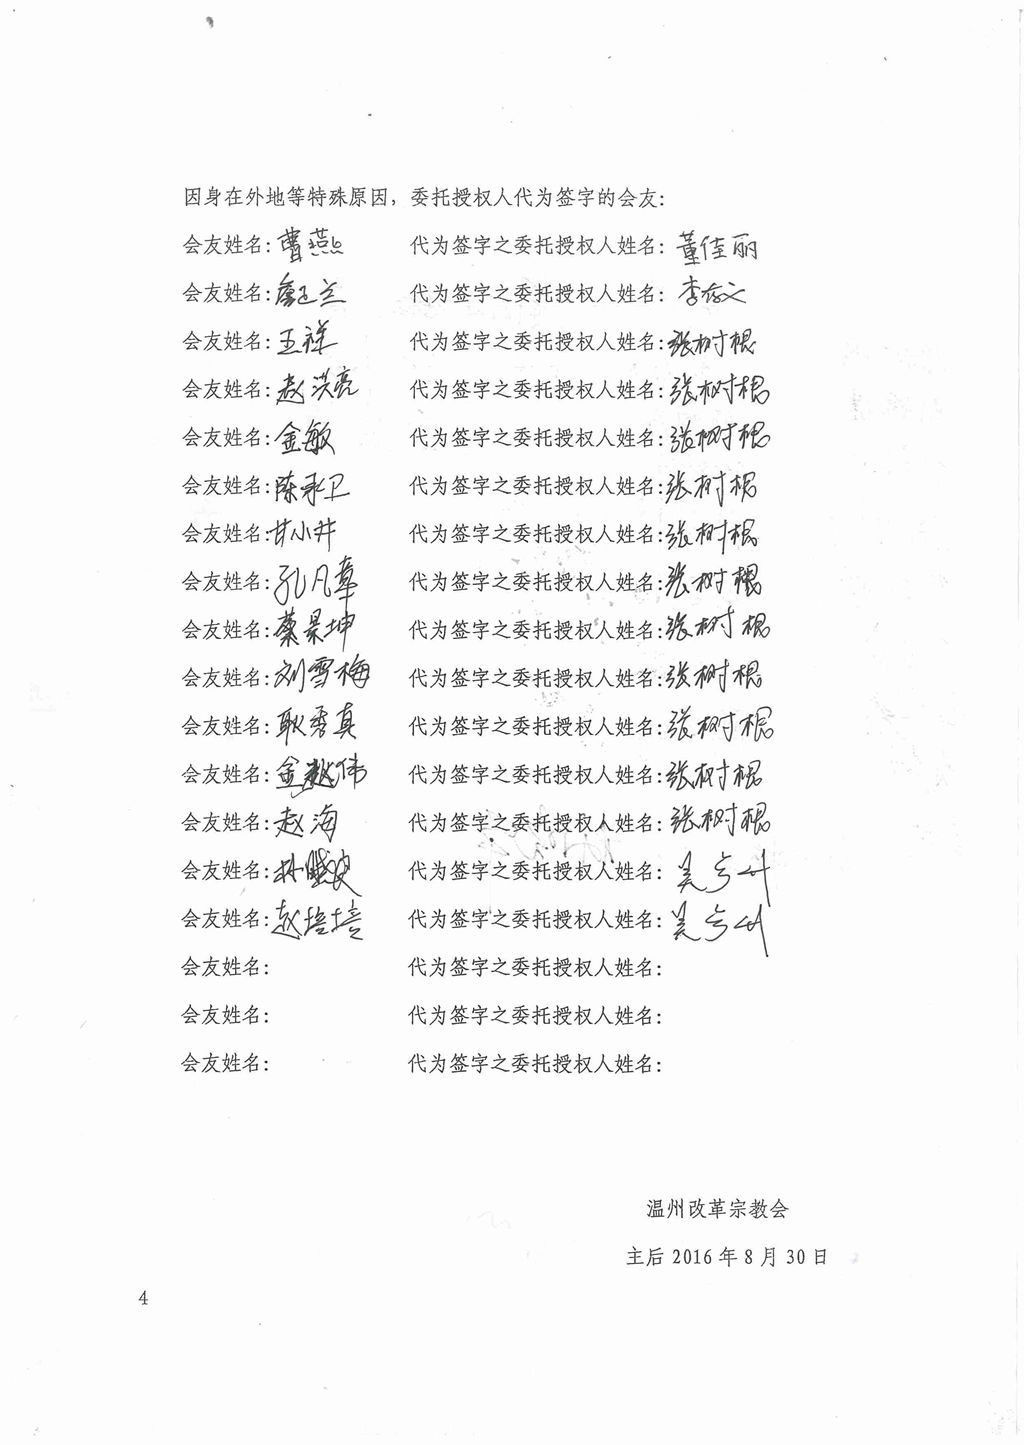 因身在外地等特殊原因，委托授权人代为签字的会友：
会友姓名：曹燕 代为签字之委托授权人姓名：董佳丽
会友姓名：玉兰 代为签字之委托授权人姓名：李存义
会友姓名：王祥 代为签字之委托授权人姓名：张树根
会友姓名：赵洪亮 代为签字之委托授权人姓名：张树根
会友姓名：金敏 代为签字之委托授权人姓名：张树根
会友姓名：陈承卫 代为签字之委托授权人姓名：张树根
会友姓名：甘小井 代为签字之委托授权人姓名：张树根
会友姓名：孔凡章 代为签字之委托授权人姓名：张树根
会友姓名：蔡景坤 代为签字之委托授权人姓名：张树根
会友姓名：刘雪梅 代为签字之委托授权人姓名：张树根
会友姓名：耿秀真 代为签字之委托授权人姓名：张树根
会友姓名：金赵伟 代为签字之委托授权人姓名：张树根
会友姓名：赵海 代为签字之委托授权人姓名：张树根
会友姓名： 代为签字之委托授权人姓名：吴
会友姓名：赵培培 代为签字之委托授权人姓名：吴
会友姓名： 代为签字之委托授权人姓名：
会友姓名： 代为签字之委托授权人姓名：
会友姓名： 代为签字之委托授权人姓名：
温州改革宗教会
主后 2016 年 8 月 30 日
4